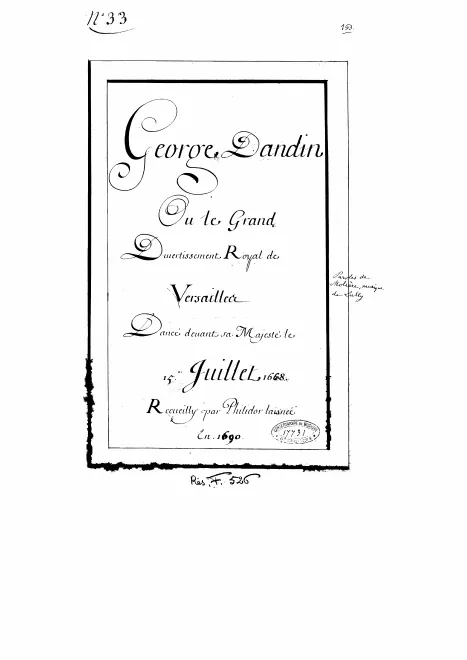 N.° 33
153
George Dandin
Ou le Grand
Divertissement Royal de
Versailles
Dancé devant sa Majesté le
15.e Juillet 1668.
Recueilly par Philidor laisnée
En 1690
Paroles de
Molière, musique
de Lully
17731
Rés F. 526